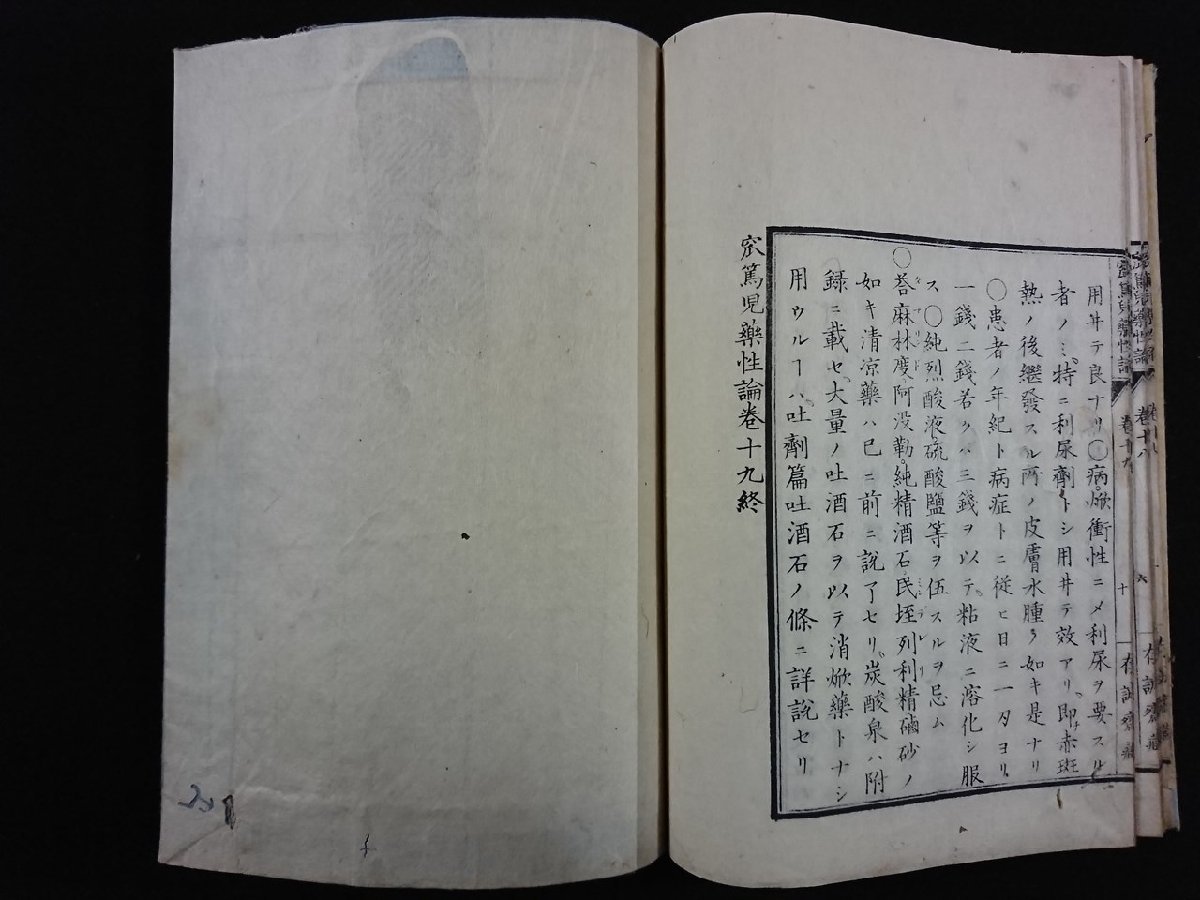 密篤児藥性論 卷十八
密篤児藥性論 卷十九 十 存誠齋藏
用井テ良ナリ〇病焮衝性ニメ利尿ヲ要スル
者ノミ特ニ利尿劑トシ用井テ效アリ即赤斑
熱ノ後繼發スル所ノ皮膚水腫ノ如キ是ナリ
〇患者ノ年紀ト病症トニ従ヒ日ニ一タヨリ
一錢二錢若クハ三錢ヲ以テ粘液ニ溶化シ服
ス〇純烈酸液硫酸鹽等ヲ伍スルヲ忌ム
〇荅麻林度阿没勒純精酒石民垤列利精磠砂ノ
如キ清涼藥ハ已ニ前ニ說了セリ炭酸泉ハ附
録ニ載セ大量ノ吐酒石ヲ以テ消焮藥トナシ
用ウルヿハ吐劑篇吐酒石ノ條ニ詳說セリ
密篤児藥性論卷十九終